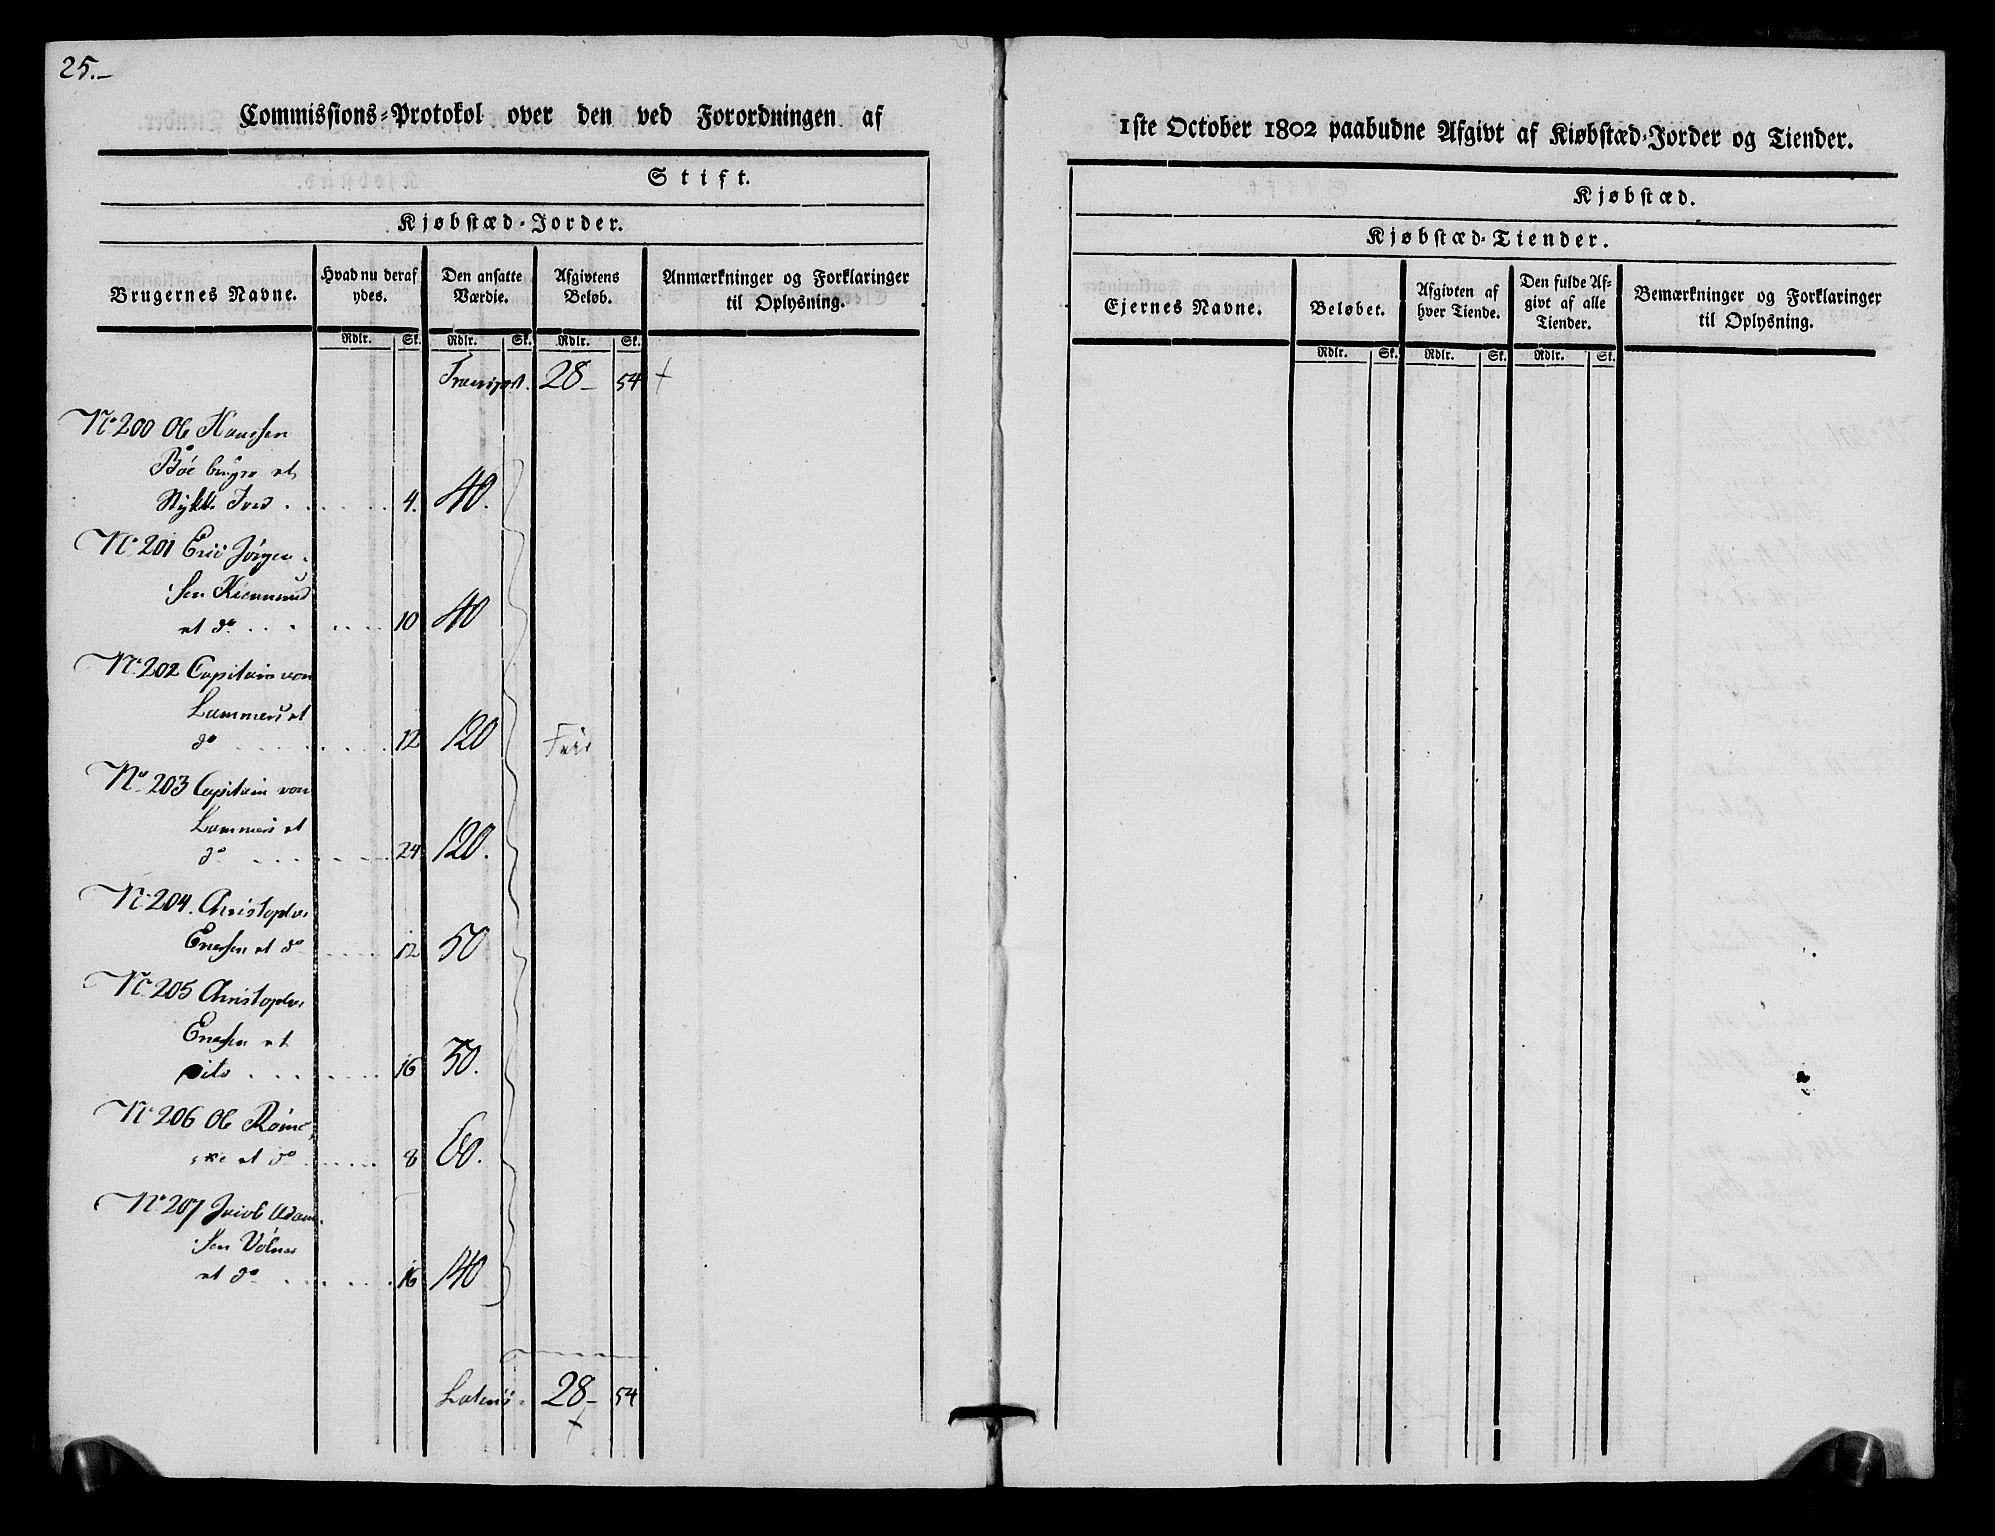 25.-
Commissions-Protokol over den ved Forordningen af
Stift.
Kjøbstæd-Jorder.
Brugernes Navne.
Hvad nu deraf ydes.
Den ansatte Værdie.
Afgivtens Beløb.
Anmærkninger og Forklaringer til Oplysning.
Rdlr. Sk. Rdlr. Sk. Rdlr. Sk.
Transport. 28 - 54 +
No 200 Ole Hansen
Böe bruger et
Stykke Jord . . . . . . 4. 40.
No 201 Eric Jörgen-
sen
et do . . . . . . 10 40
No 202 Capitain von
Lammers et
do . . . . . . 12 120 Frie
No 203 Capitain von
Lammers et
do . . . . . . 24 120.
No 204. Christopher
Enersen et do . . . . 12 50
No 205 Christopher
Enersen et
dito . . . . . . 16 50.
No 206 Ole
et do . . . . . 8 60.
No 207 Jacob Adam-
sen
et do . . . . . . 16 140
Lateris 28 - 54
+
1ste October 1802 paabudne Afgivt af Kiøbstæd-Jorder og Tiender.
Kjøbstæd.
Kjøbstæd-Tiender.
Ejernes Navne.
Beløbet.
Afgivten af hver Tiende.
Den fulde Afgivt af alle Tiender.
Bemærkninger og Forklaringer til Oplysning.
Rdlr. Sk. Rdlr. Sk. Rdlr. Sk.